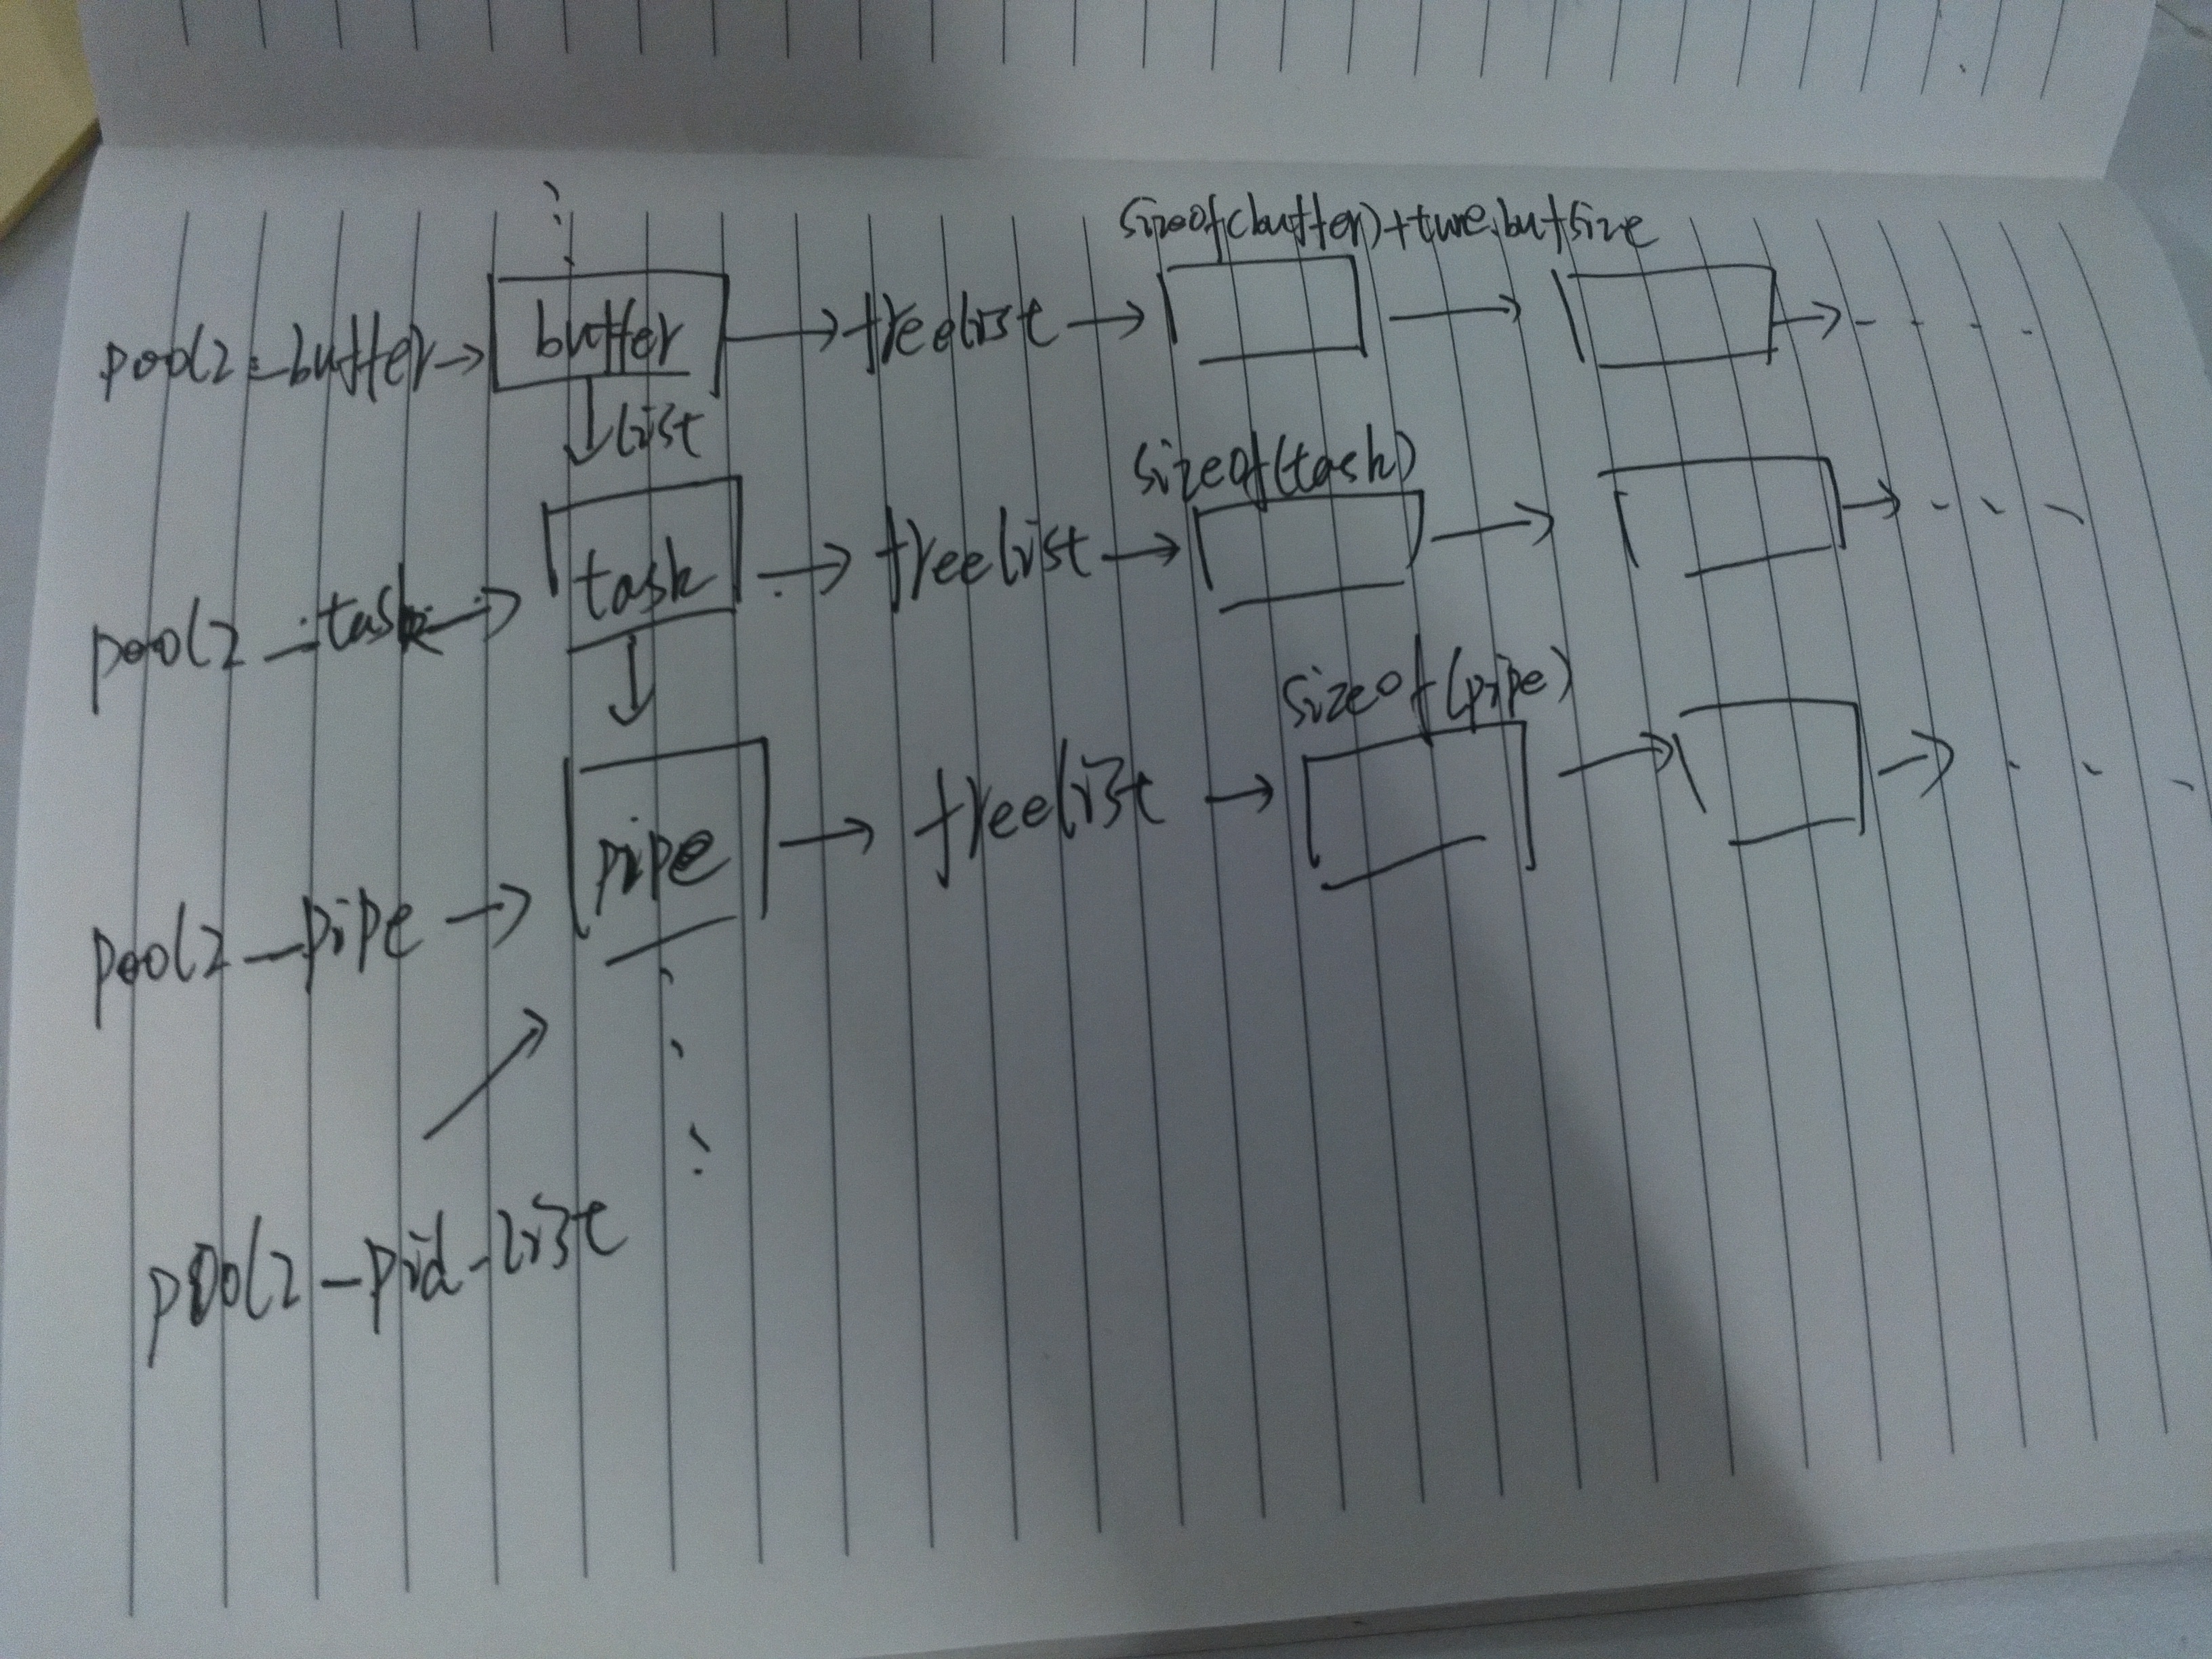 sizeof(buffer)+tune.bufsize
pool2_buffer → buffer → freelist → →
list
sizeof(task)
pool2_task → task → freelist → →
sizeof(pipe)
pool2_pipe → pipe → freelist → →
pool2_pid_list